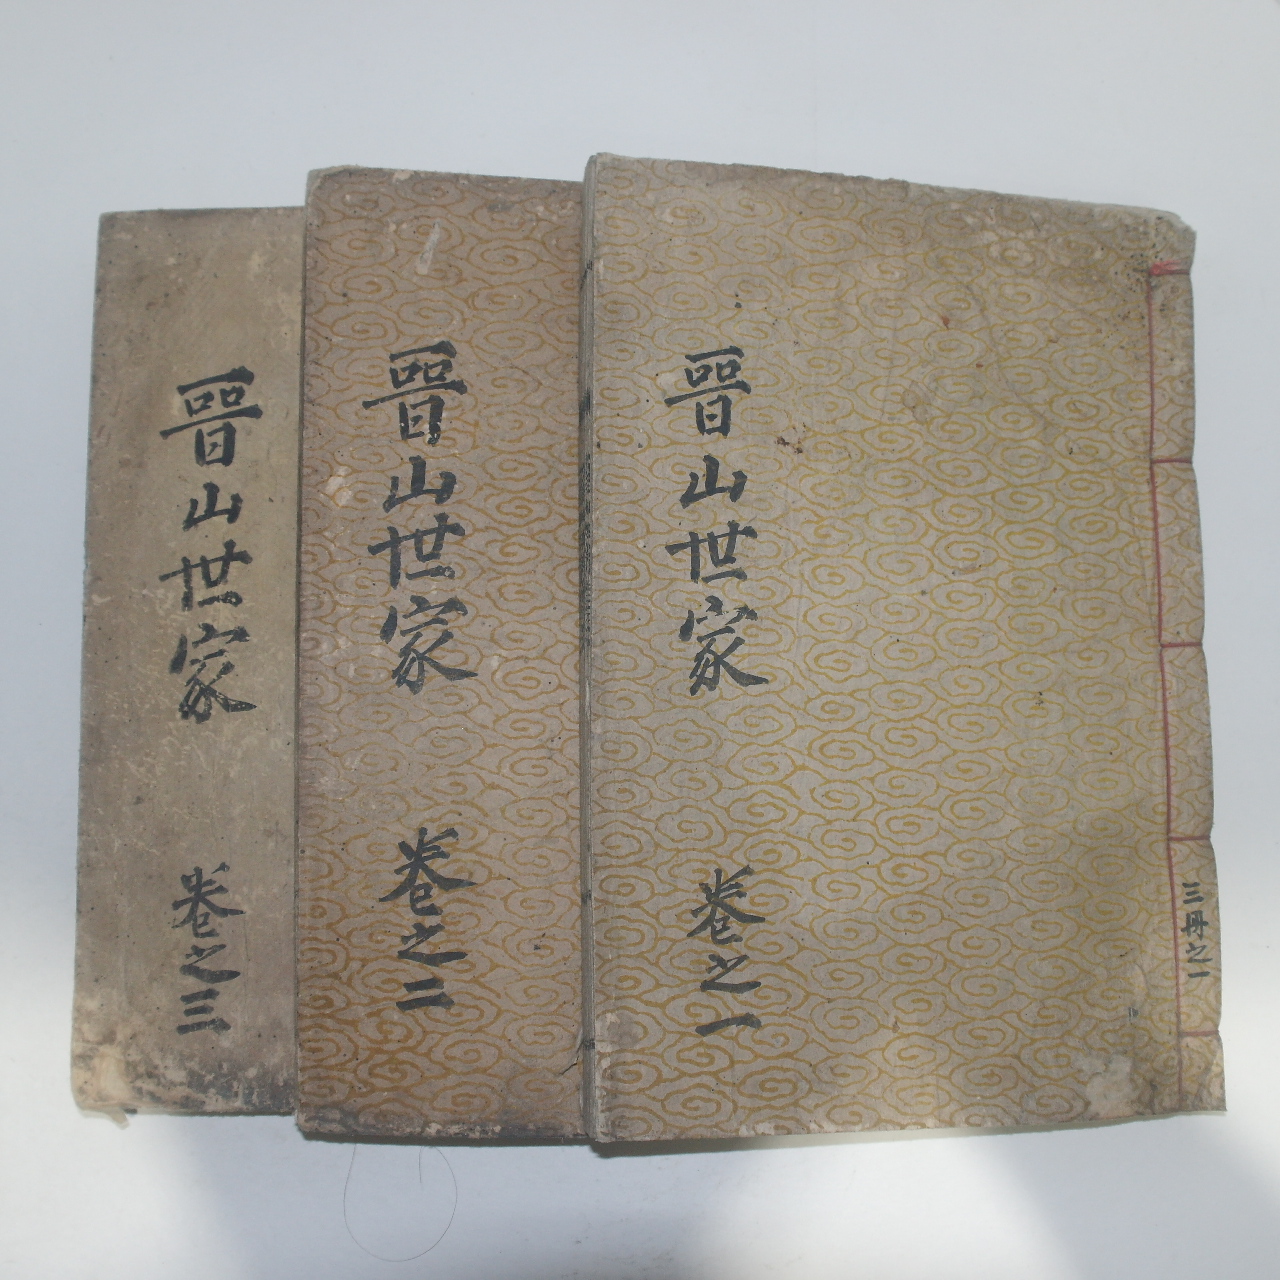 晉山世家 卷之一
三冊之一
晉山世家 卷之二
晉山世家 卷之三